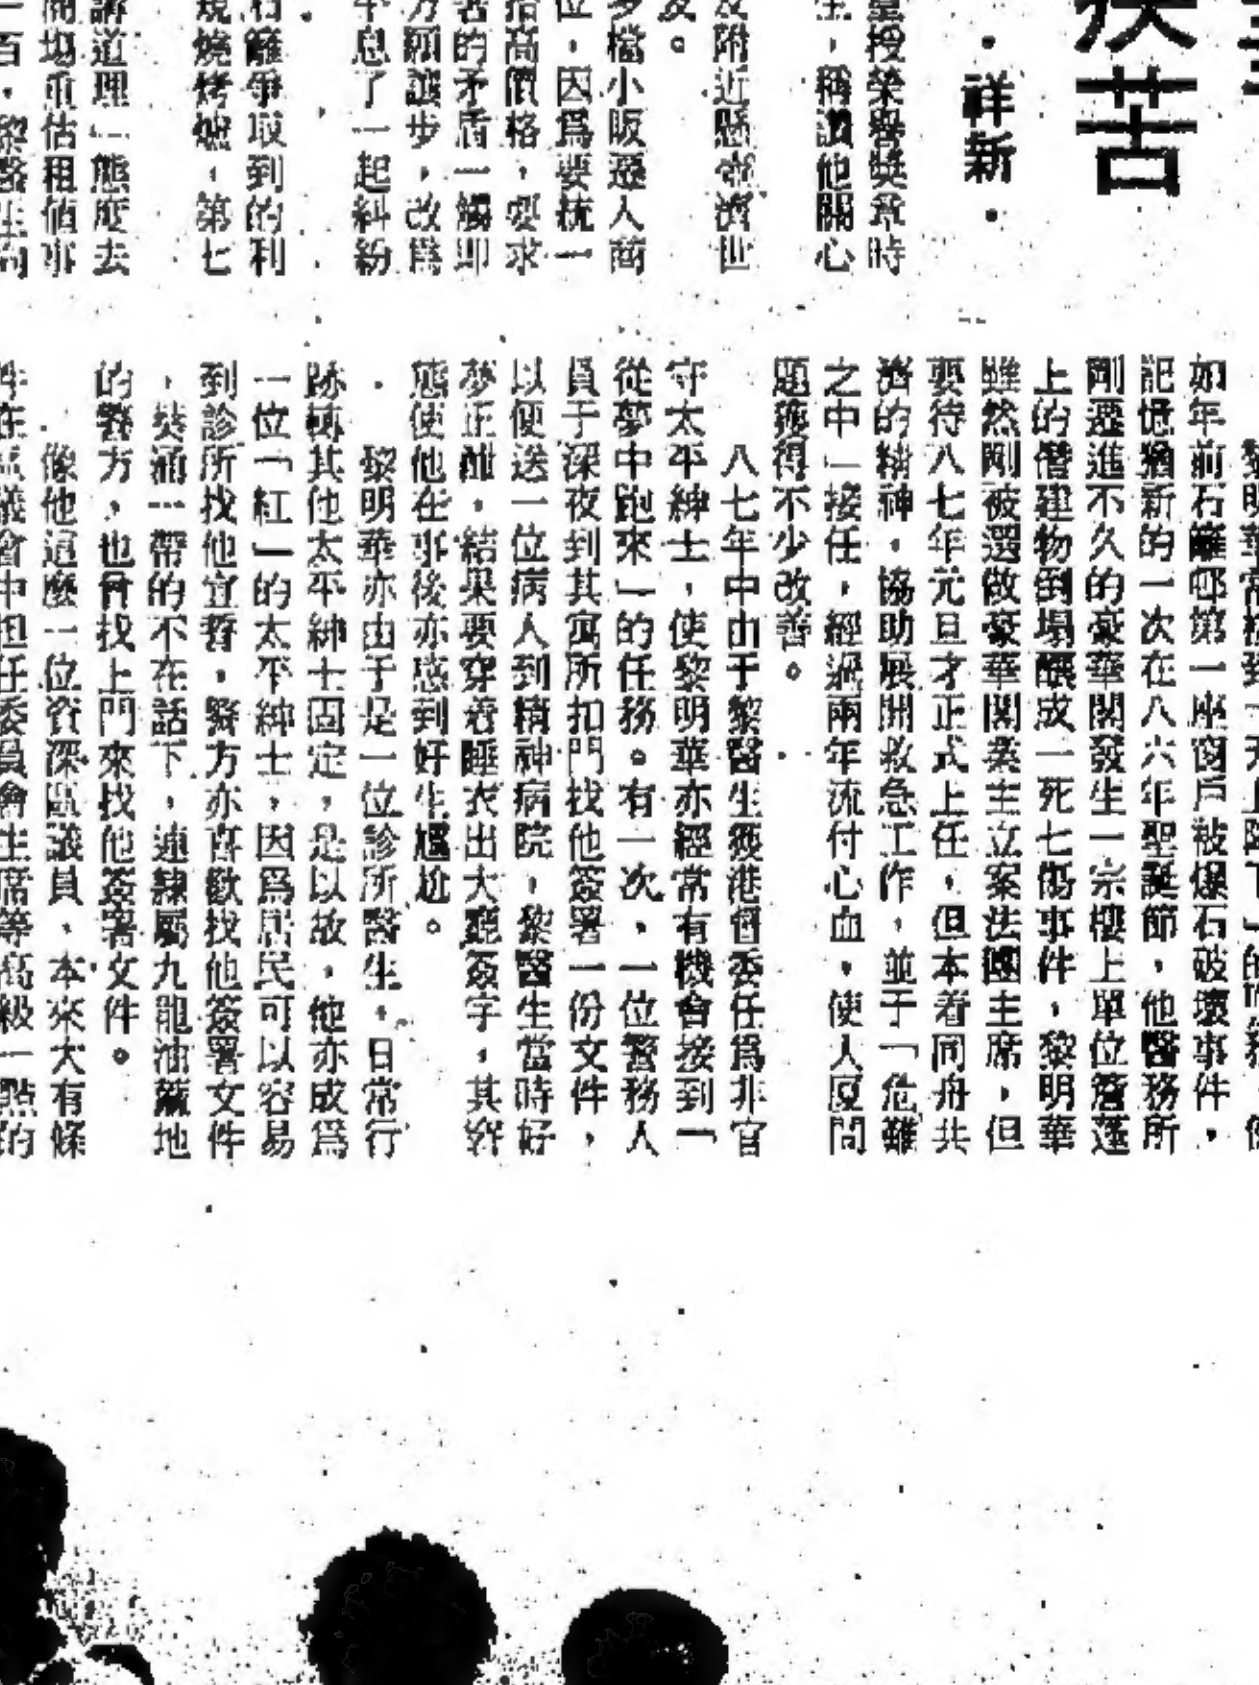 疾苦
·祥新·
授榮譽獎章時
,稱讚他關心
附近懸壺濟世
。
多檔小販遷入商
位,因為要統一
抬高價格,要求
者的矛盾一觸即
方願讓步,改為
平息了一起糾紛
石籬爭取到的利
規燒烤爐,第七
講道理」態度去
開場重估租值事
一百,黎醫生向
如年前石籬邨第一座窗戶被爆石破壞事件,
記憶猶新的一次在八六年聖誕節,他醫務所
剛遷進不久的豪華閣發生一宗樓上單位簷蓬
上的僭建物倒塌釀成一死七傷事件,黎明華
雖然剛被選做豪華閣業主立案法團主席,但
要待八七年元旦才正式上任,但本着同舟共
濟的精神,協助展開救急工作,並于「危難
之中」接任,經過兩年流付心血,使人厦問
題獲得不少改善。
八七年中由于黎醫生獲港督委任為非官
守太平紳士,使黎明華亦經常有機會接到「
從夢中跑來」的任務。有一次,一位警務人
員于深夜到其寓所扣門找他簽署一份文件,
以便送一位病人到精神病院,黎醫生當時好
夢正酣,結果要穿着睡衣出大廳簽字,其窘
態使他在事後亦感到好生尷尬。
黎明華亦由于是一位診所醫生,日常行
跡較其他太平紳士固定,是以故,他亦成為
一位「紅」的太平紳士,因為居民可以容易
到診所找他宣誓,警方亦喜歡找他簽署文件
,葵涌一帶的不在話下,連隸屬九龍油蔴地
的警方,也曾找上門來找他簽署文件。
像他這麼一位資深區議員,本來大有條
件在區議會中担任委員會主席等高級一點的